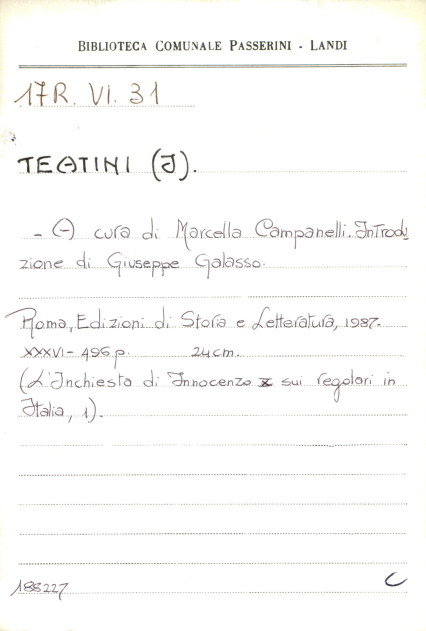 BIBLIOTECA COMUNALE PASSERINI - LANDI
17R. VI. 31
TEATINI (I).
- (-) cura di Marcella Campanelli. Introdu
zione di Giuseppe Galasso.
Roma, Edizioni di Stora e Letteratura, 1987.
XXXVI - 496 p. 24 cm.
(L'Inchiesta di Innocenzo X sui regolari in
Italia, 1).
188227 C